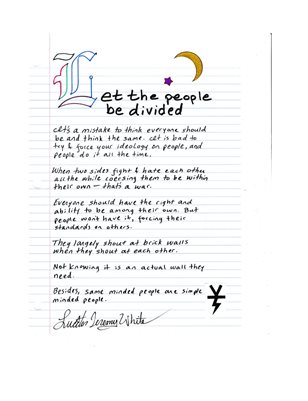 Let the people
be divided
It's a mistake to think everyone should
be and think the same. It is bad to
try & force your ideology on people, and
people do it all the time.
When two sides fight & hate each other
all the while coercing them to be within
their own — thats a war.
Everyone should have the right and
ability to be among their own. But
people wont have it, forcing their
standards on others.
They largely shout at brick walls
when they shout at each other.
Not knowing it is an actual wall they
need.
Besides, same minded people are simple
minded people.
Jeremy White